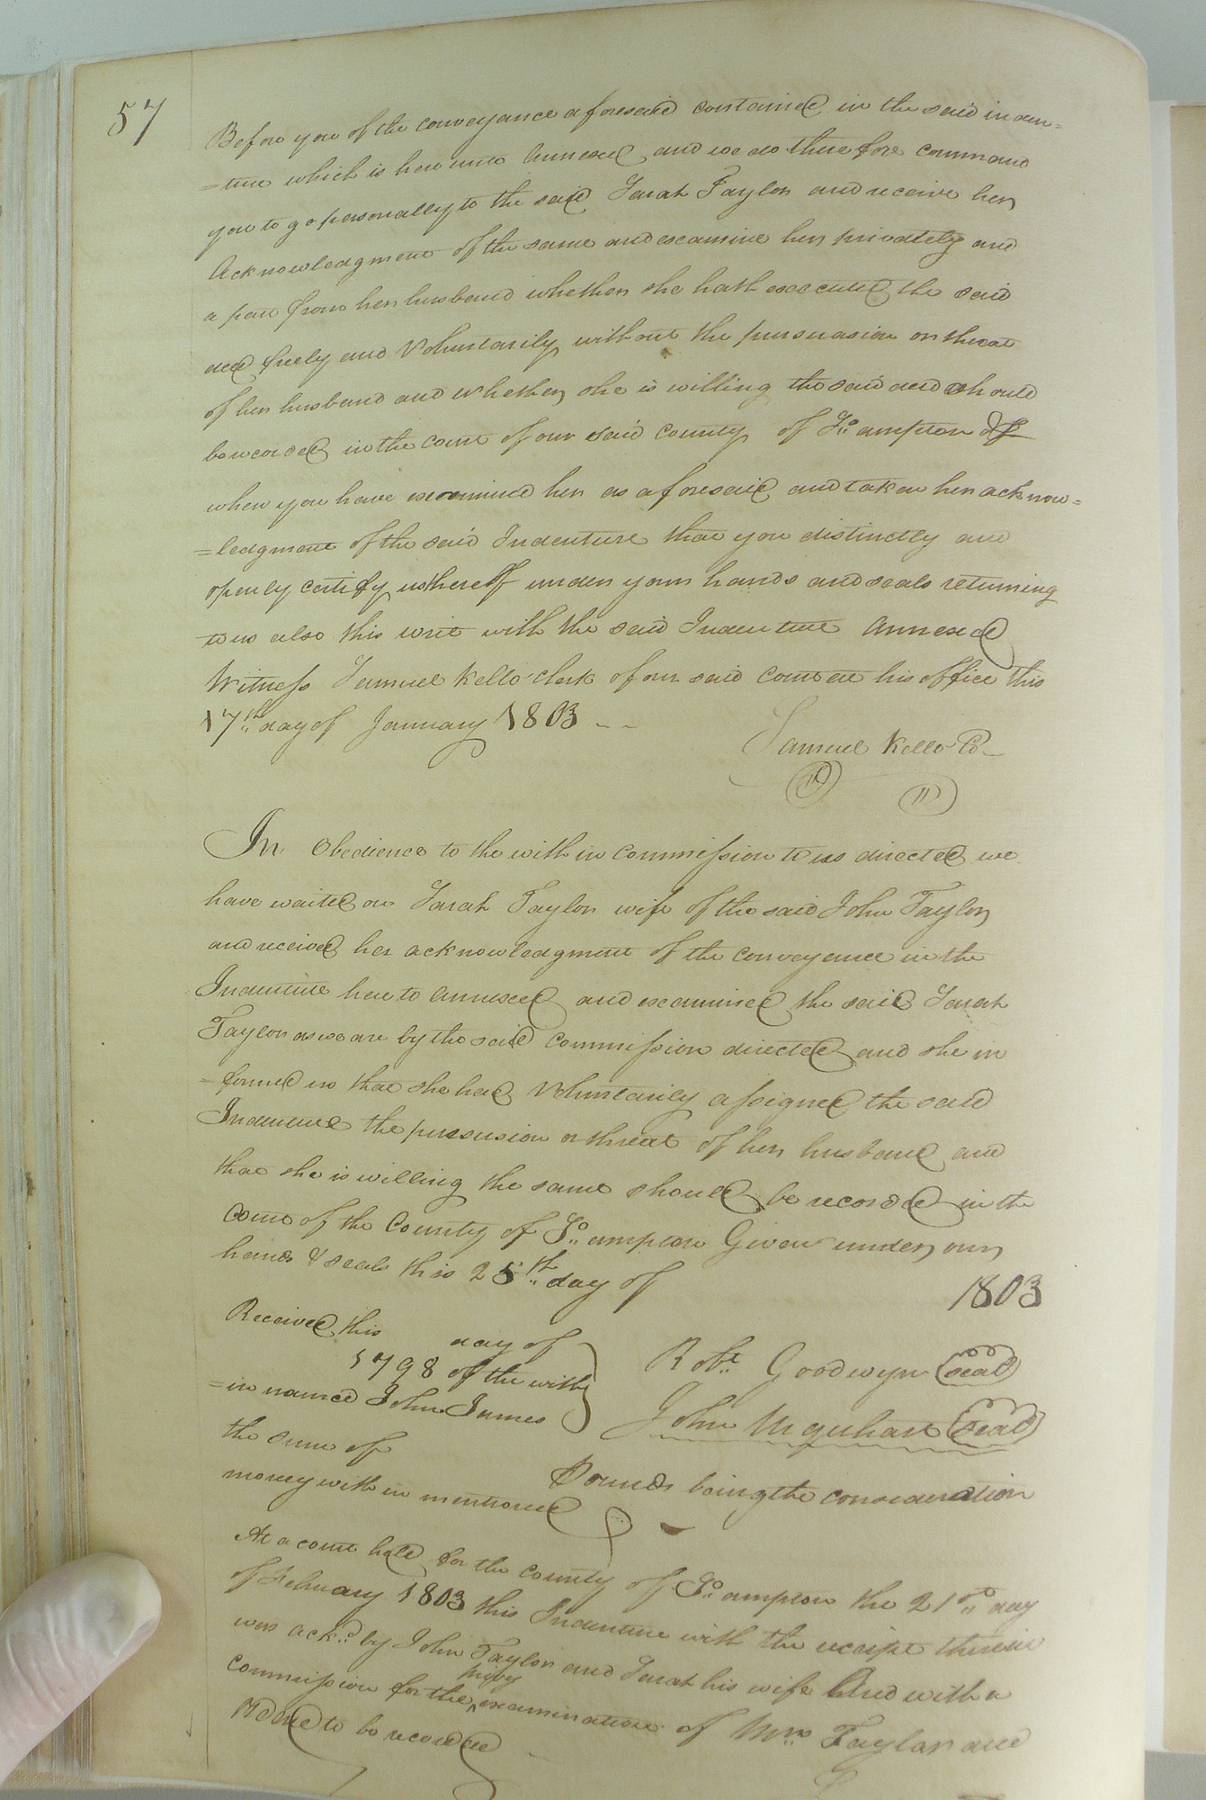 57
Before you of the conveyance aforesaid contained in the said inden=
=ture which is hereunto Annexed and we do therefore command
you to go personally to the said Sarah Taylor and receive her
Acknowledgment of the same and examine her privately and
apart from her husband whether she hath executed the said
deed freely and Voluntarily without the pursuasion or threat
of her husband and whether she is willing the said deed should
be recorded in the Court of our said County of So.ampton &
when you have examined her as aforesaid and taken her acknow=
=ledgment of the said Indenture that you distinctly and
openly certify us thereof under your hands and seals returning
to us also this writ with the said Indenture Annexed
Witness Samuel Kello Clerk of our said Court at his office this
17th day of January 1803 --
Samuel Kello
In Obedience to the within Commission to us directed we
have waited on Sarah Taylor wife of the said John Taylor
and received her acknowledgment of the conveyance in the
Indenture hereto annexed and examined the said Sarah
Taylor as we are by the said Commission directed and she in
=formed us that she had Voluntarily assigned the said
Indenture the pursusion or threat of her husband and
that she is willing the same should be recorded in the
Court of the County of So.ampton Given under our
hands & seals this 25th day of 1803
Robt Goodwyn (seal)
John Urquhart (seal)
Received this day of
1798 of the with
=in named John James
the sum of Pounds being the consideration
money within mentioned
At a court held for the County of So.ampton the 21st day
of February 1803 this Indenture with the receipt therein
was ackd by John Taylor and Sarah his wife And with a
commission for the privy examination of Mrs Taylor and
Ordered to be recorded